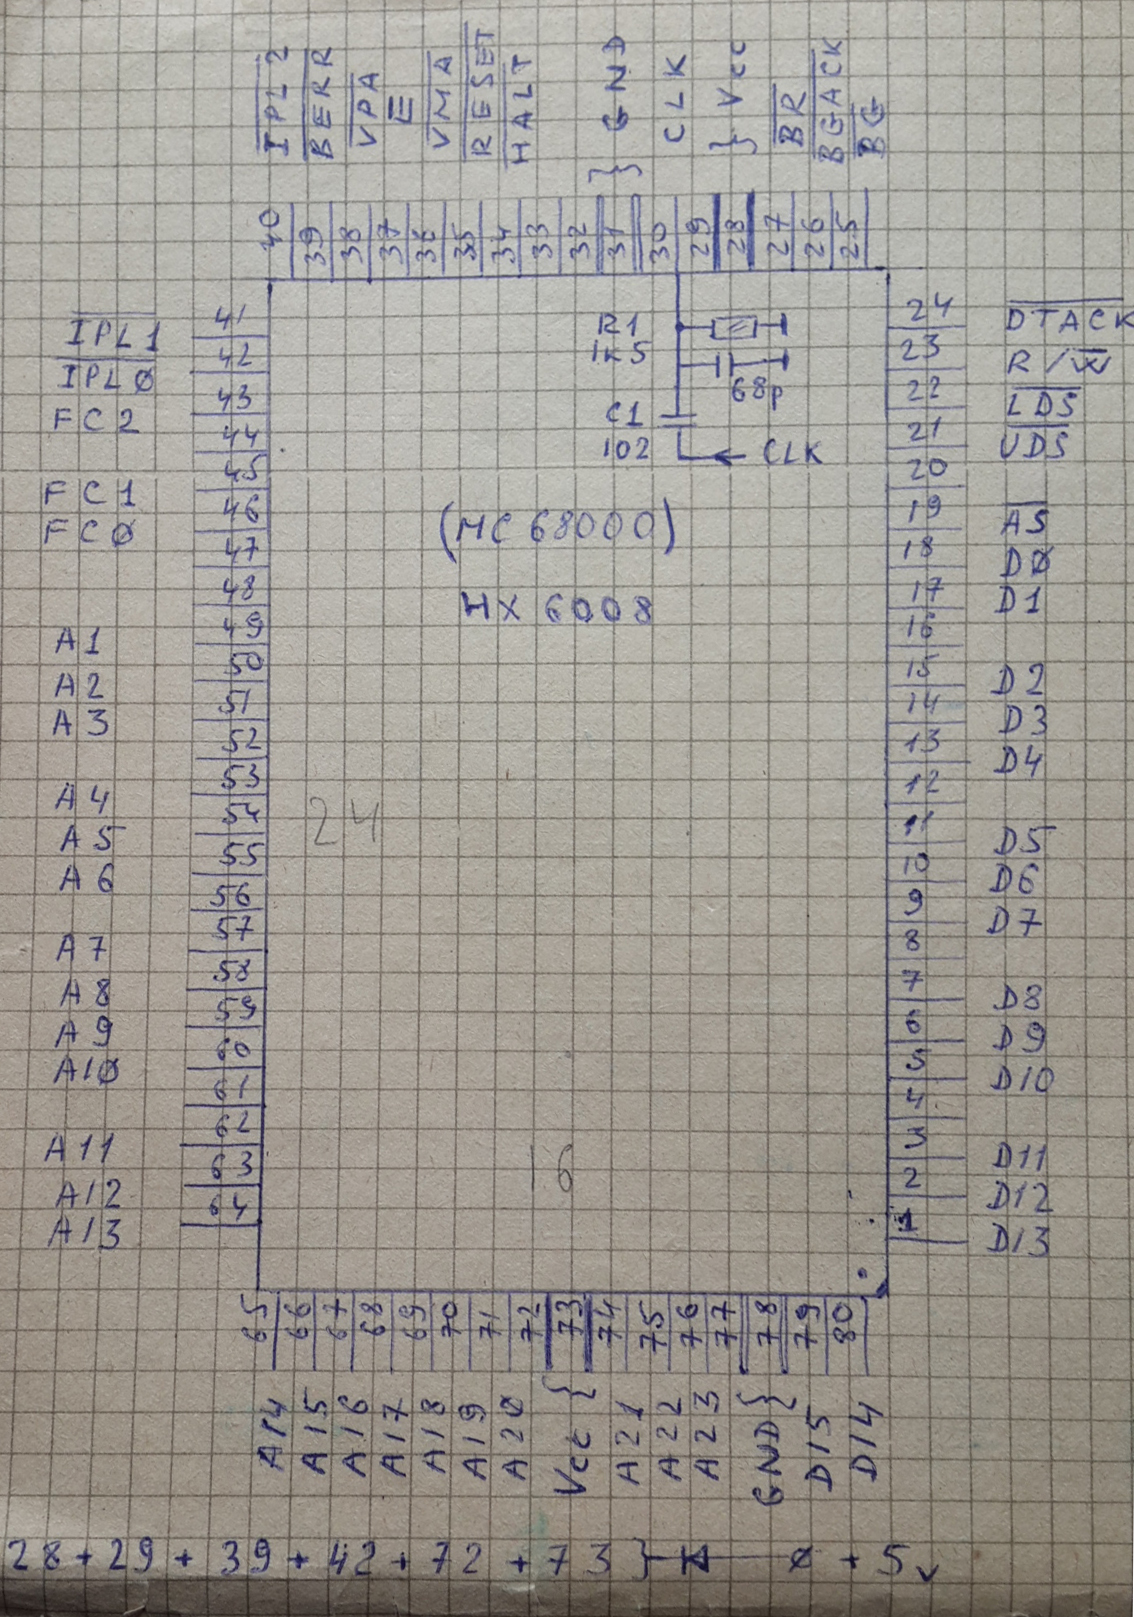 IPL2
BERR
VPA
E
VMA
RESET
HALT
} GND
CLK
} Vcc
BR
BGACK
BG
40 39 38 37 36 35 34 33 32 31 30 29 28 27 26 25
IPL1
IPL0
FC2
FC1
FC0
A1
A2
A3
A4
A5
A6
A7
A8
A9
A10
A11
A12
A13
41
42
43
44
45
46
47
48
49
50
51
52
53
54
55
56
57
58
59
60
61
62
63
64
R1
1K5
68p
C1
102
CLK
(MC 68000)
HX 6008
24
16
24
23
22
21
20
19
18
17
16
15
14
13
12
11
10
9
8
7
6
5
4
3
2
1
DTACK
R/W
LDS
UDS
AS
D0
D1
D2
D3
D4
D5
D6
D7
D8
D9
D10
D11
D12
D13
65 66 67 68 69 70 71 72 73 74 75 76 77 78 79 80
A14
A15
A16
A17
A18
A19
A20
Vcc {
A21
A22
A23
GND }
D15
D14
28 + 29 + 39 + 42 + 72 + 73 } + 5v